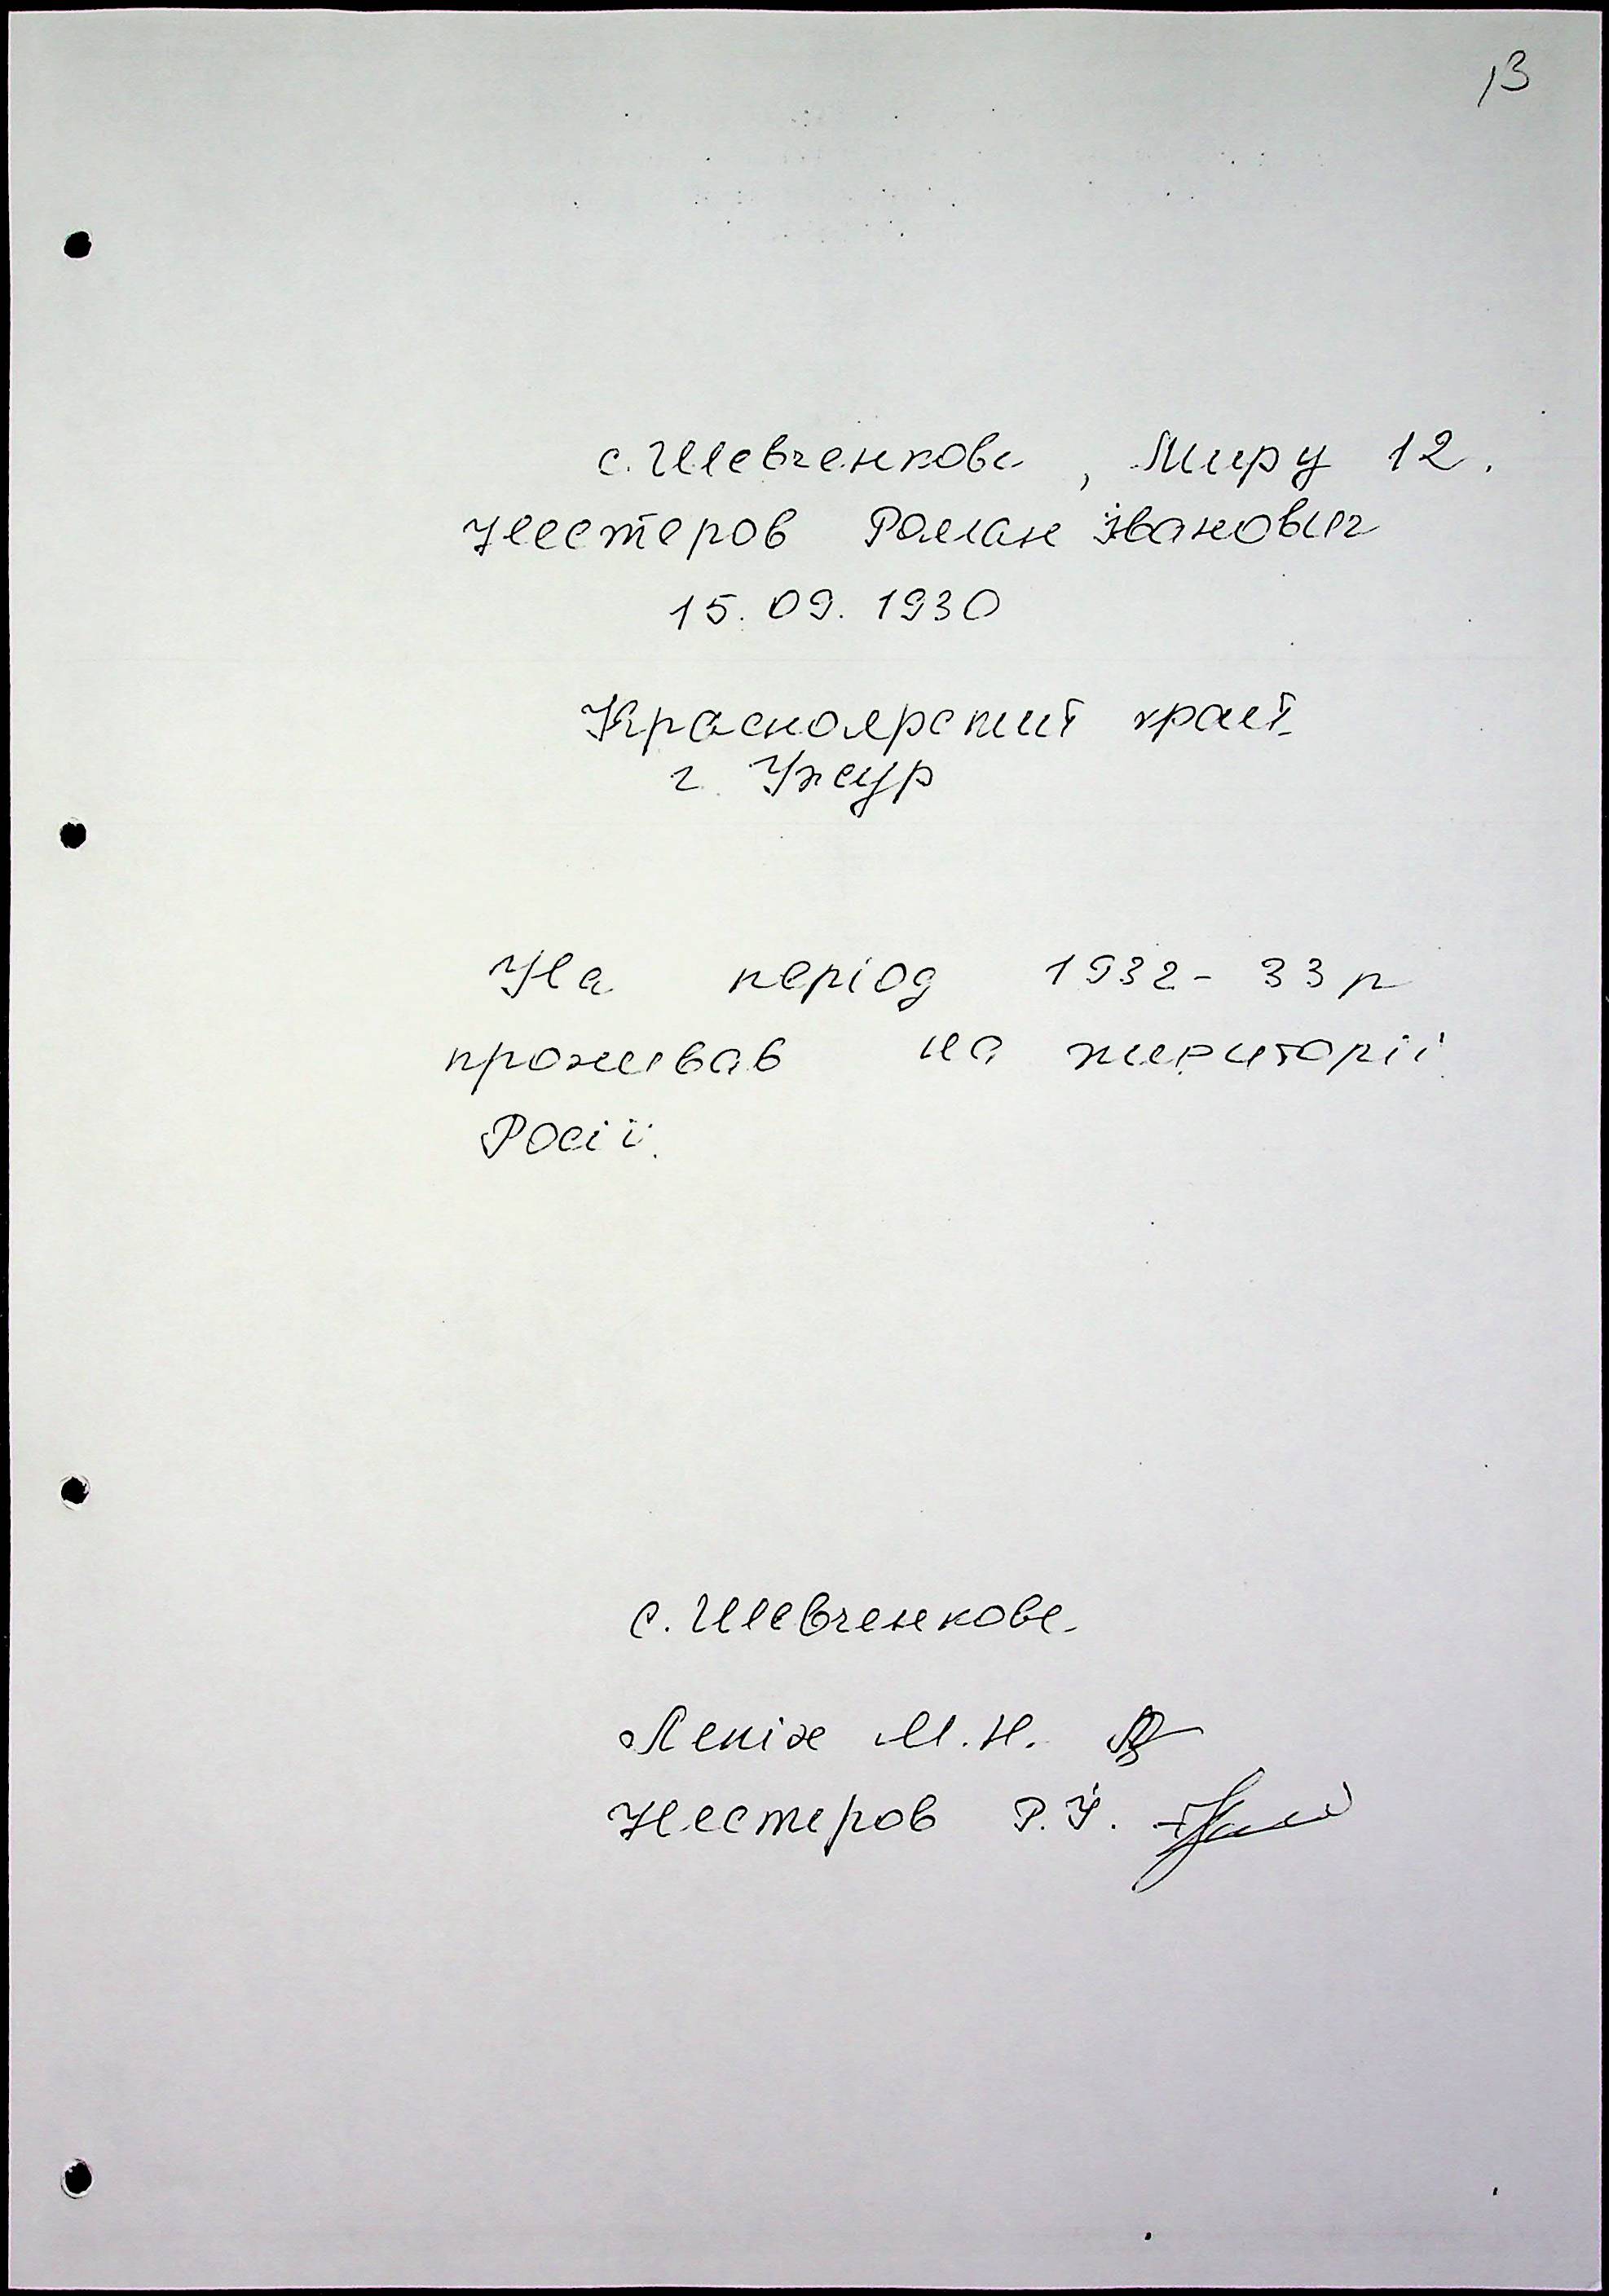 13
с. Шевченкове, Миру 12.
Нестеров Роман Іванович
15.09.1930
Красноярский край
г. Ужур
На період 1932-33 р
проживав на території
Росії.
с. Шевченкове
М.Н.
Нестеров Р.І.